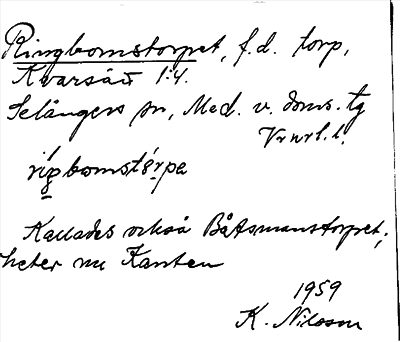 Ringbomstorpet, f.d. torp,
Kvarsätt 1:4.
Selångers sn, Med. v. doms. tg
rigbomstørpa
Kallades också Båtsmanstorpet;
heter nu Kanten
1959
K. Nilsson